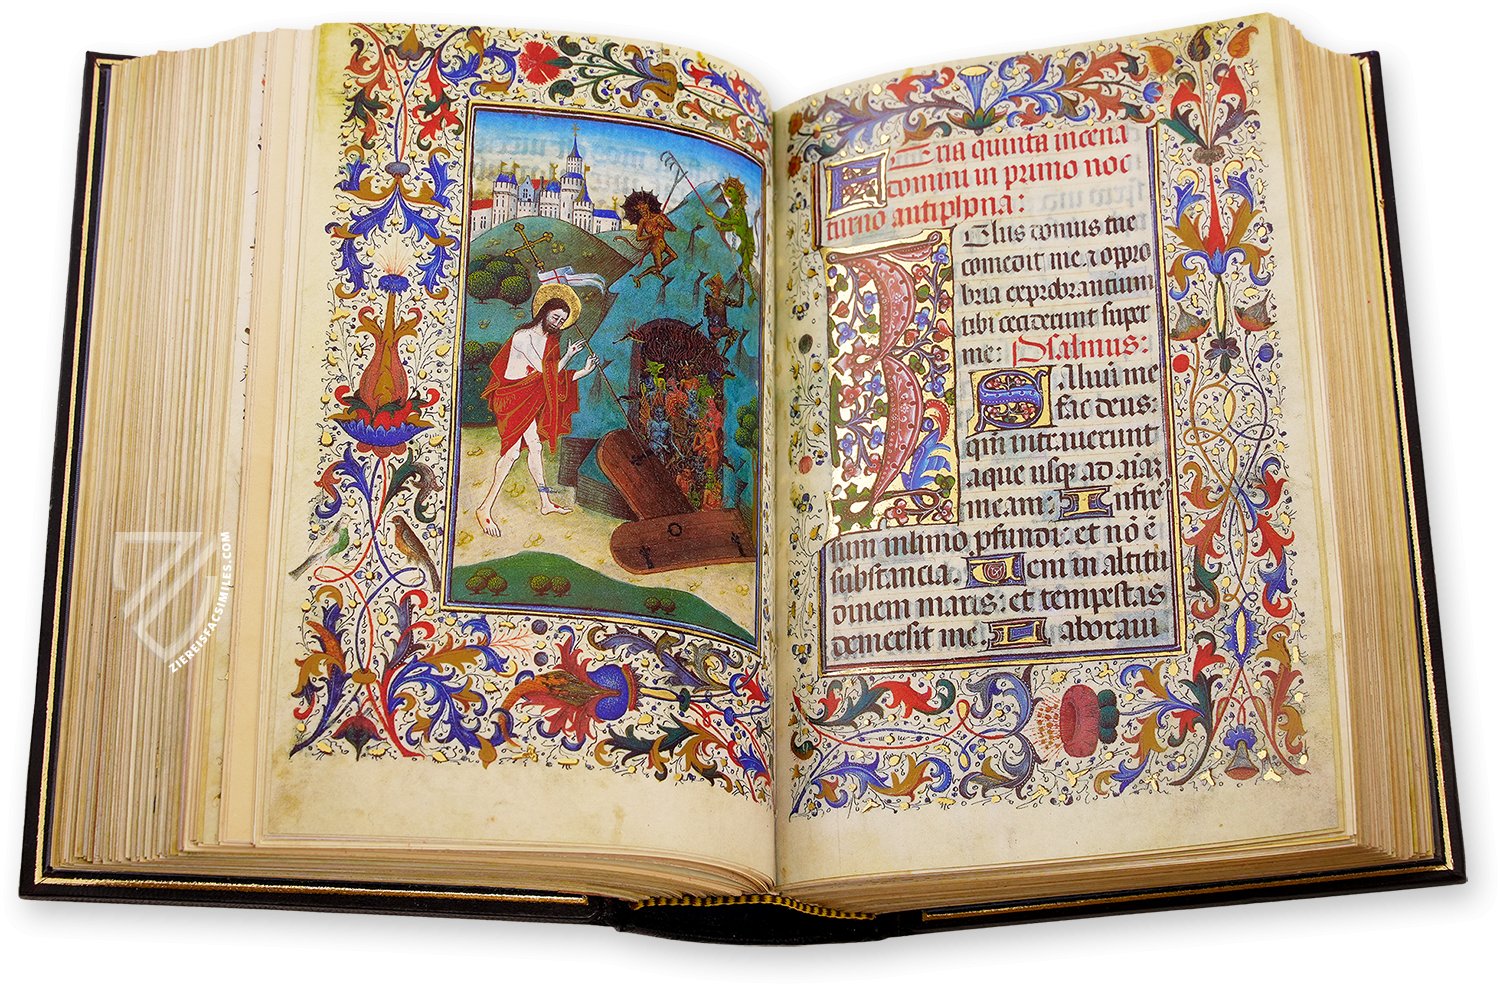 Eria quinta in cena
domini in primo noc
turno antiphona:
Elus domus tue
comedit me. a oppro
bria exprobrantium
tibi ceciderunt super
me: Psalmus:
Saluū me
fac deus:
qm̄ intrauerunt
aque usq ad aīaz
meam: Infir
sum in limo pfundi: et nō ē
substancia. Ueni in altitu
dinem maris: et tempestas
demersit me. Laboraui
ZIEREISFACSIMILES.COM